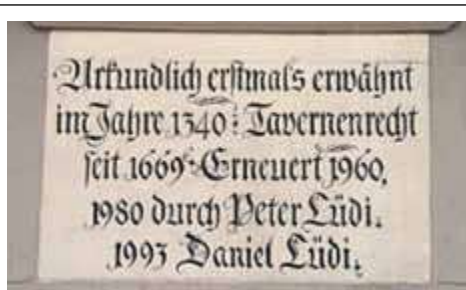 Urkundlich erstmals erwähnt
im Jahre 1340: Tavernenrecht
seit 1669 · Erneuert 1960,
1980 durch Peter Lüdi.
1993 Daniel Lüdi.